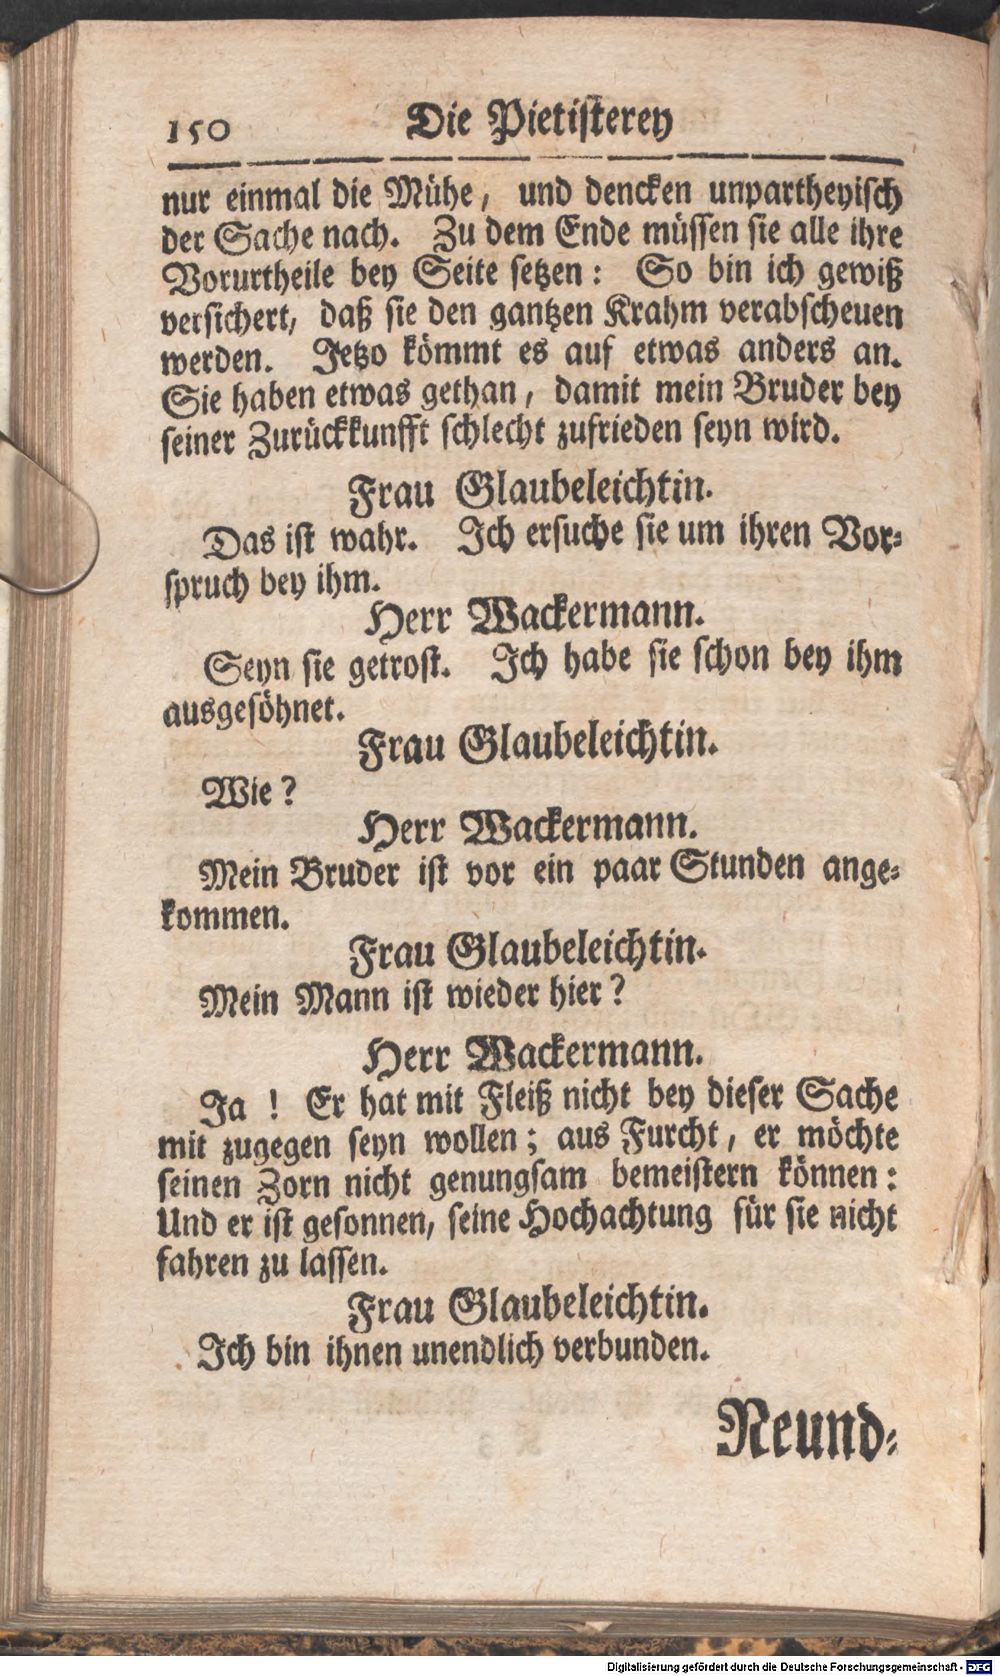 150 Die Pietisterey
nur einmal die Mühe, und dencken unpartheyisch
der Sache nach. Zu dem Ende müssen sie alle ihre
Vorurtheile bey Seite setzen: So bin ich gewiß
versichert, daß sie den gantzen Krahm verabscheuen
werden. Jetzo kömmt es auf etwas anders an.
Sie haben etwas gethan, damit mein Bruder bey
seiner Zurückkunfft schlecht zufrieden seyn wird.
Frau Glaubeleichtin.
Das ist wahr. Ich ersuche sie um ihren Vor-
spruch bey ihm.
Herr Wackermann.
Seyn sie getrost. Ich habe sie schon bey ihm
ausgesöhnet.
Frau Glaubeleichtin.
Wie?
Herr Wackermann.
Mein Bruder ist vor ein paar Stunden ange-
kommen.
Frau Glaubeleichtin.
Mein Mann ist wieder hier?
Herr Wackermann.
Ja! Er hat mit Fleiß nicht bey dieser Sache
mit zugegen seyn wollen; aus Furcht, er möchte
seinen Zorn nicht genungsam bemeistern können:
Und er ist gesonnen, seine Hochachtung für sie nicht
fahren zu lassen.
Frau Glaubeleichtin.
Ich bin ihnen unendlich verbunden.
Neund-
Digitalisierung gefördert durch die Deutsche Forschungsgemeinschaft - DFG